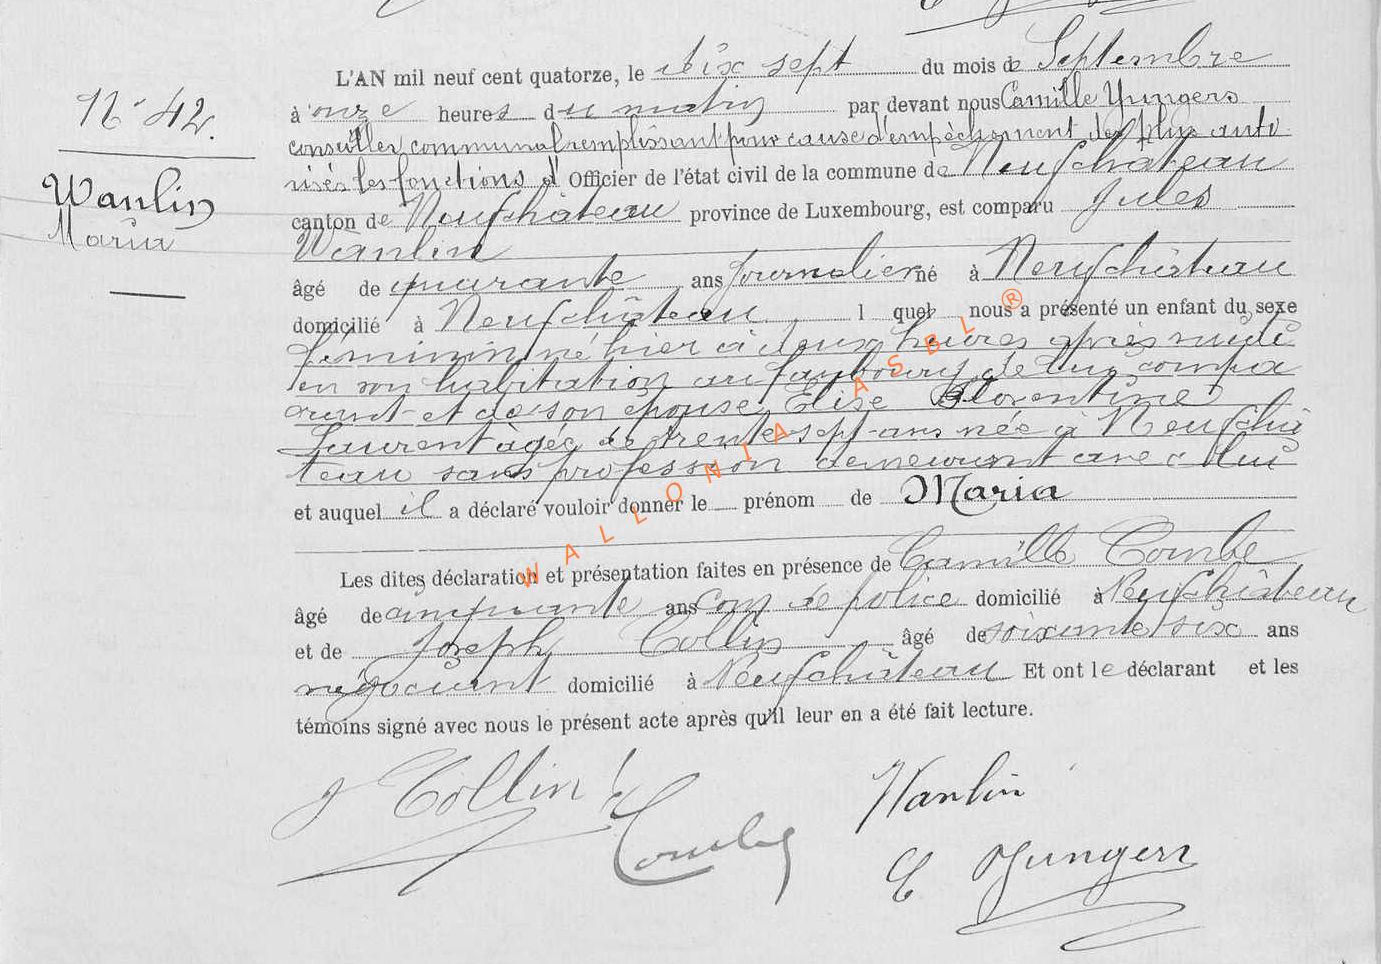 L'AN mil neuf cent quatorze, le dix sept du mois de Septembre
N° 42.
à onze heures du matin par devant nous Camille Yungers
conseiller communal remplissant pour cause d'empêchement des plus auto
Wanlin
Maria
risés les fonctions d' Officier de l'état civil de la commune de Neufchâteau
canton de Neufchâteau province de Luxembourg, est comparu Jules
Wanlin
âgé de quarante ans Journalier né à Neufchâteau
domicilié à Neufchâteau l quel nous a présenté un enfant du sexe
féminin né hier à deux heures après midi
en son habitation au faubourg de lui compa
rant et de son épouse Elise Florentine
Laurent âgée de trente-sept ans née à Neufchâ
teau sans profession demeurant avec lui
et auquel il a déclaré vouloir donner le prénom de Maria
WALLONIA ASBL ®
Les dites déclaration et présentation faites en présence de Camille Combe
âgé de cinquante ans Com de police domicilié à Neufchâteau
et de Joseph Collin âgé de soixante six ans
négociant domicilié à Neufchâteau Et ont le déclarant et les
témoins signé avec nous le présent acte après qu'il leur en a été fait lecture.
J Collin
Wanlin
Combe
C Yungers